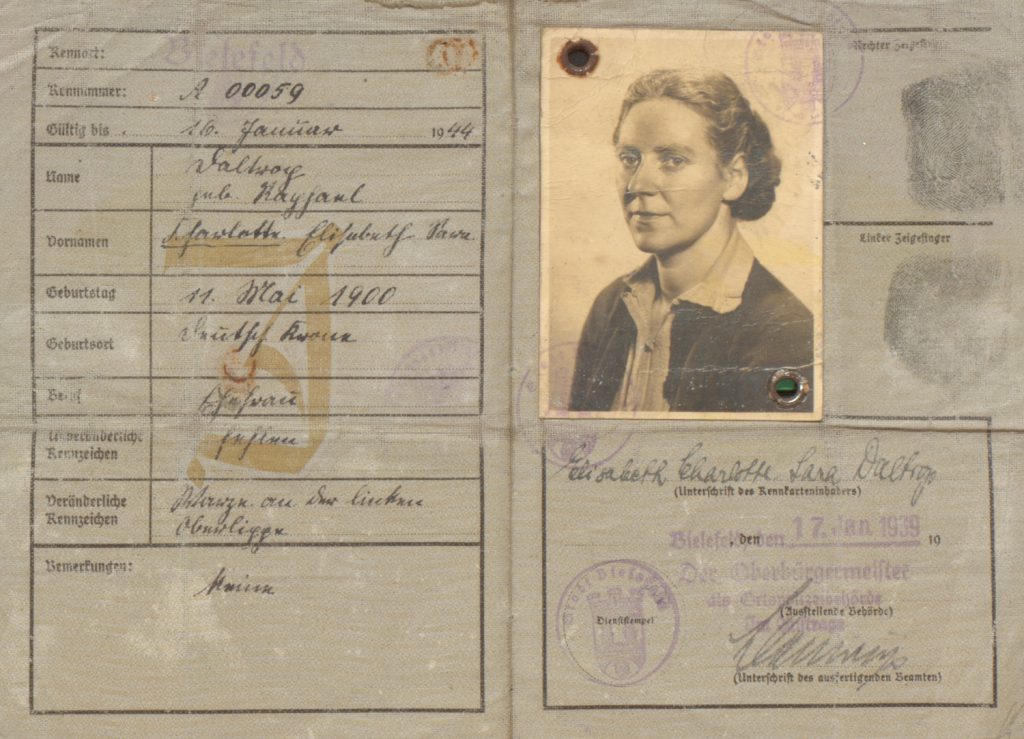 Kennort: Bielefeld
Kennummer: A 00059
Gültig bis 16. Januar 1944
Name Daltrop
geb. Raphael
Vornamen Charlotte Elisabeth Sara
Geburtstag 11. Mai 1900
Geburtsort Deutsch Krone
Beruf Ehefrau
Unveränderliche Kennzeichen fehlen
Veränderliche Kennzeichen Warze an der linken
Oberlippe
Bemerkungen: keine
J
Rechter Zeigefinger
Linker Zeigefinger
Elisabeth Charlotte Sara Daltrop
(Unterschrift des Kennkarteninhabers)
Bielefeld, den 17. Jan. 1939 19
Der Oberbürgermeister
als Ortspolizeibehörde
(Ausstellende Behörde)
Im Auftrage
Stadt Bielefeld
Dienststempel
(Unterschrift des ausfertigenden Beamten)